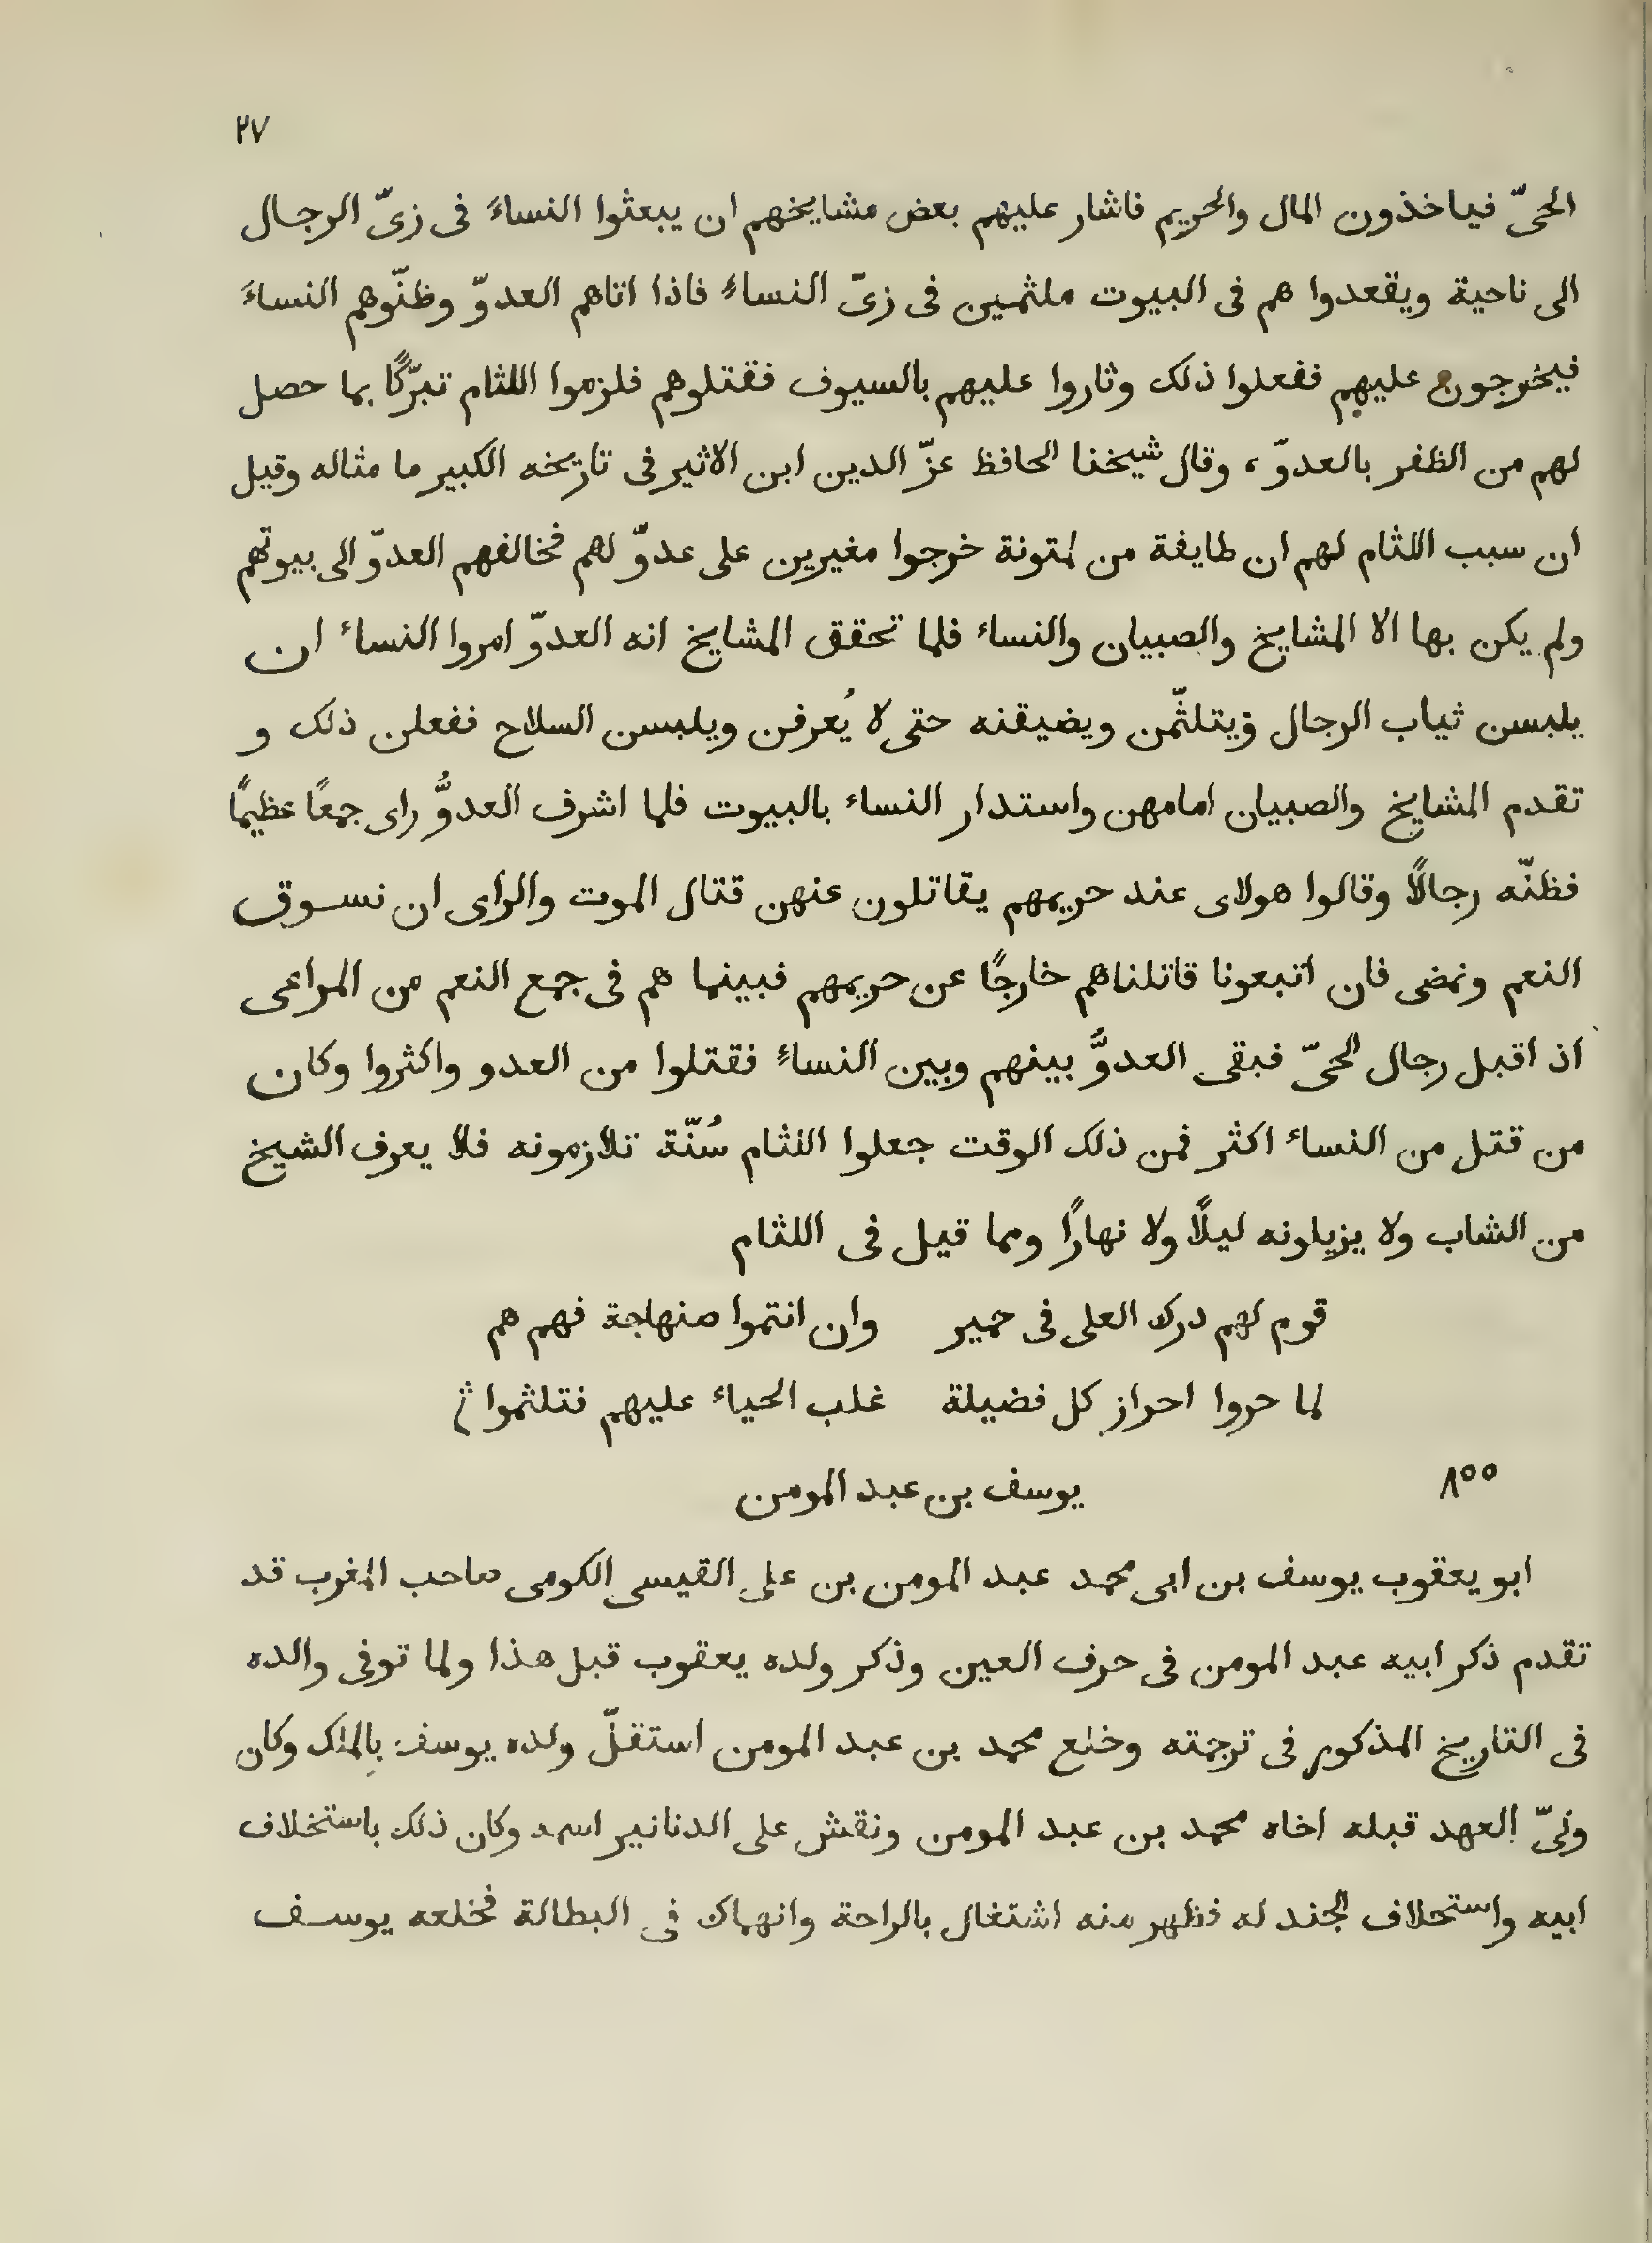 ٢٧
الحىّ فياخذون المال والحريم فاشار عليهم بعض مشايخهم ان يبعثوا النساءَ فى زىّ الرجال
الى ناحية ويقعدوا هم فى البيوت ملثمين فى زىّ النساءِ فاذا اتاهم العدوّ وظنّوهم النساءَ
فيخرجون عليهم ففعلوا ذلك وثاروا عليهم بالسيوف فقتلوهم فلزموا اللثام تبرّكًا بما حصل
لهم من الظفر بالعدوّ، وقال شيخنا الحافظ عزّ الدين ابن الاثير فى تاريخه الكبير ما مثاله وقيل
ان سبب اللثام لهم ان طايفة من لمتونة خرجوا مغيرين على عدوّ لهم فخالفهم العدوّ الى بيوتهم
ولم يكن بها الا المشايخ والصبيان والنساء فلما تحقق المشايخ انه العدوّ امروا النساء ان
يلبسن ثياب الرجال ويتلثّمن ويضيقنه حتى لا يُعرفن ويلبسن السلاح ففعلن ذلك و
تقدم المشايخ والصبيان امامهن واستدار النساء بالبيوت فلما اشرف العدوُّ راى جمعًا عظيمًا
فظنّه رجالًا وقالوا هولاى عند حريمهم يقاتلون عنهن قتال الموت والراى ان نسوق
النعم ونمضى فان اتبعونا قاتلناهم خارجًا عن حريمهم فبينما هم فى جمع النعم من المراعى
اذ اقبل رجال الحىّ فبقى العدوُّ بينهم وبين النساءِ فقتلوا من العدو واكثروا وكان
من قتل من النساء اكثر فمن ذلك الوقت جعلوا اللثام سُنّة تلازمونه فلا يعرف الشيخ
من الشاب ولا يزيلونه ليلًا ولا نهارًا ومما قيل فى اللثام
قوم لهم درك العلى فى حمير وان انتموا صنهاجة فهم هم
لما حروا احراز كل فضيلة غلب الحياء عليهم فتلثموا
٨٥٥ يوسف بن عبد المومن
ابو يعقوب يوسف بن ابى محمد عبد المومن بن على القيسى الكومى صاحب المغرب قد
تقدم ذكر ابيه عبد المومن فى حرف العين وذكر ولده يعقوب قبل هذا ولما توفى والده
فى التاريخ المذكور فى ترجمته وخلع محمد بن عبد المومن استقلّ ولده يوسف بالملك وكان
ولىّ العهد قبله اخاه محمد بن عبد المومن ونقش على الدنانير اسمه وكان ذلك باستخلاف
ابيه واستحلاف الجند له فظهر منه اشتغال بالراحة وانهماك فى البطالة فخلعه يوسف